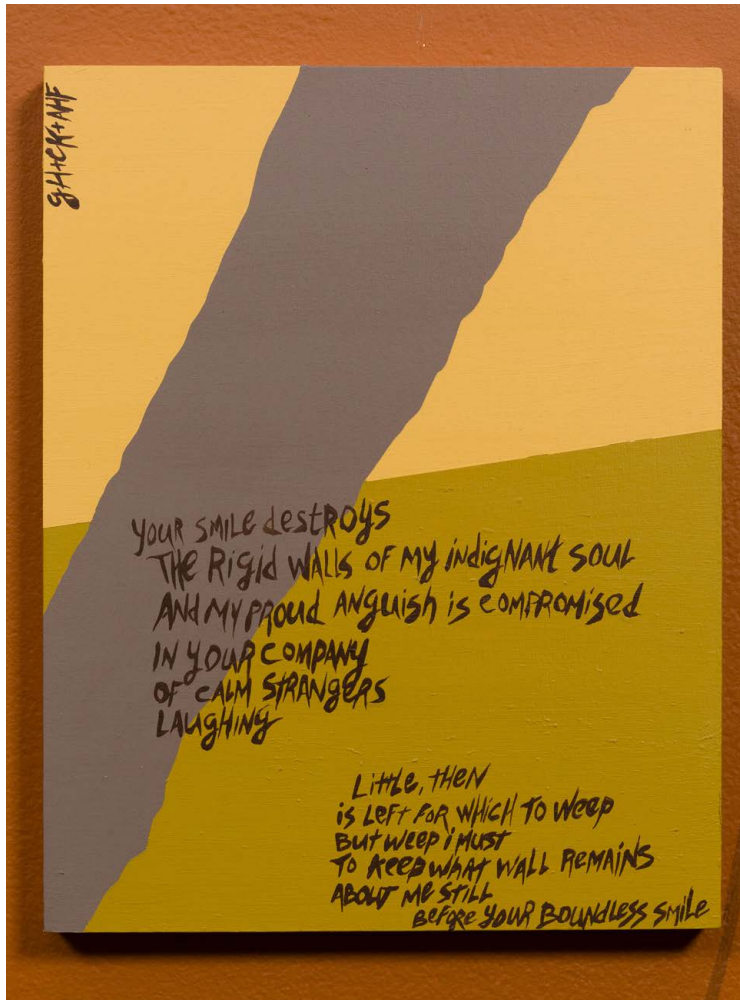 gH+CK+NHF
YOUR SMILE destROYS
THE Rigid WALLS OF MY indigNANt SOUL
ANd MY PROUd ANguish is COMPROMISEd
IN YOUR COMPANY
OF CALM STRANGERS
LAUGHING
Little, THEN
is LEFT FOR WHICH TO WEEP
BUT WEEP i MUST
TO KEEP WHAT WALL REMAINS
ABOUT ME STILL
BEFORE YOUR BOUNDLESS SMILE